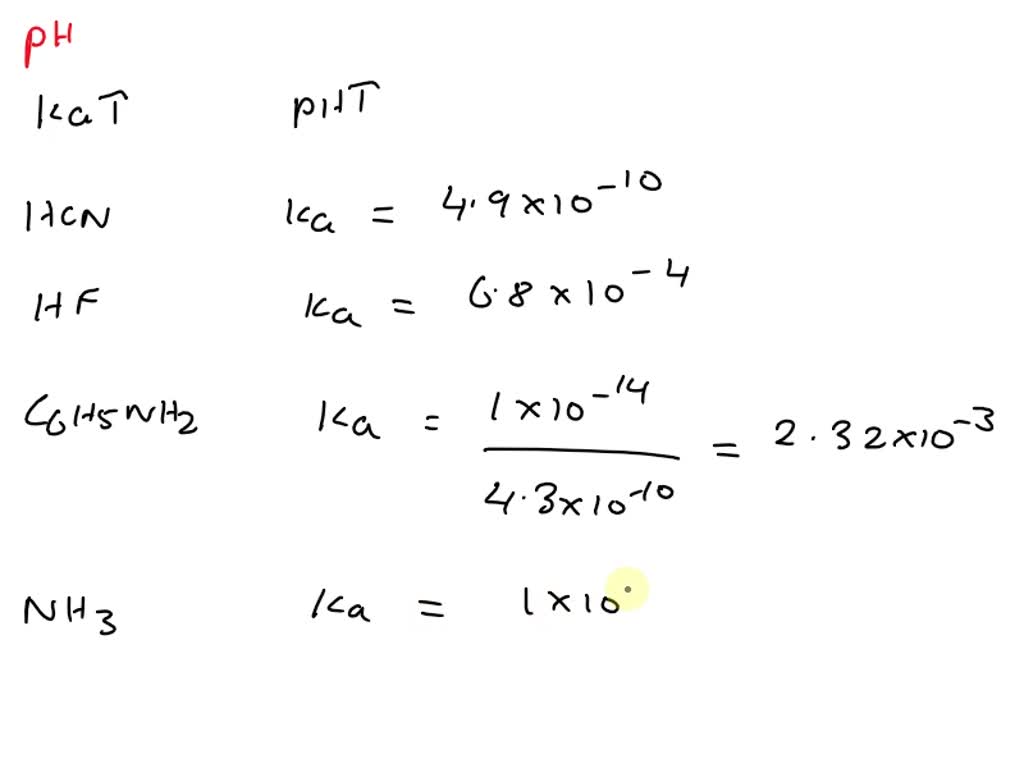 pH
Ka↑ pH↑
HCN Ka = 4.9×10⁻¹⁰
HF Ka = 6.8×10⁻⁴
C6H5NH2 Ka = 1×10⁻¹⁴ / 4.3×10⁻¹⁰ = 2.32×10⁻³
NH3 Ka = 1×10